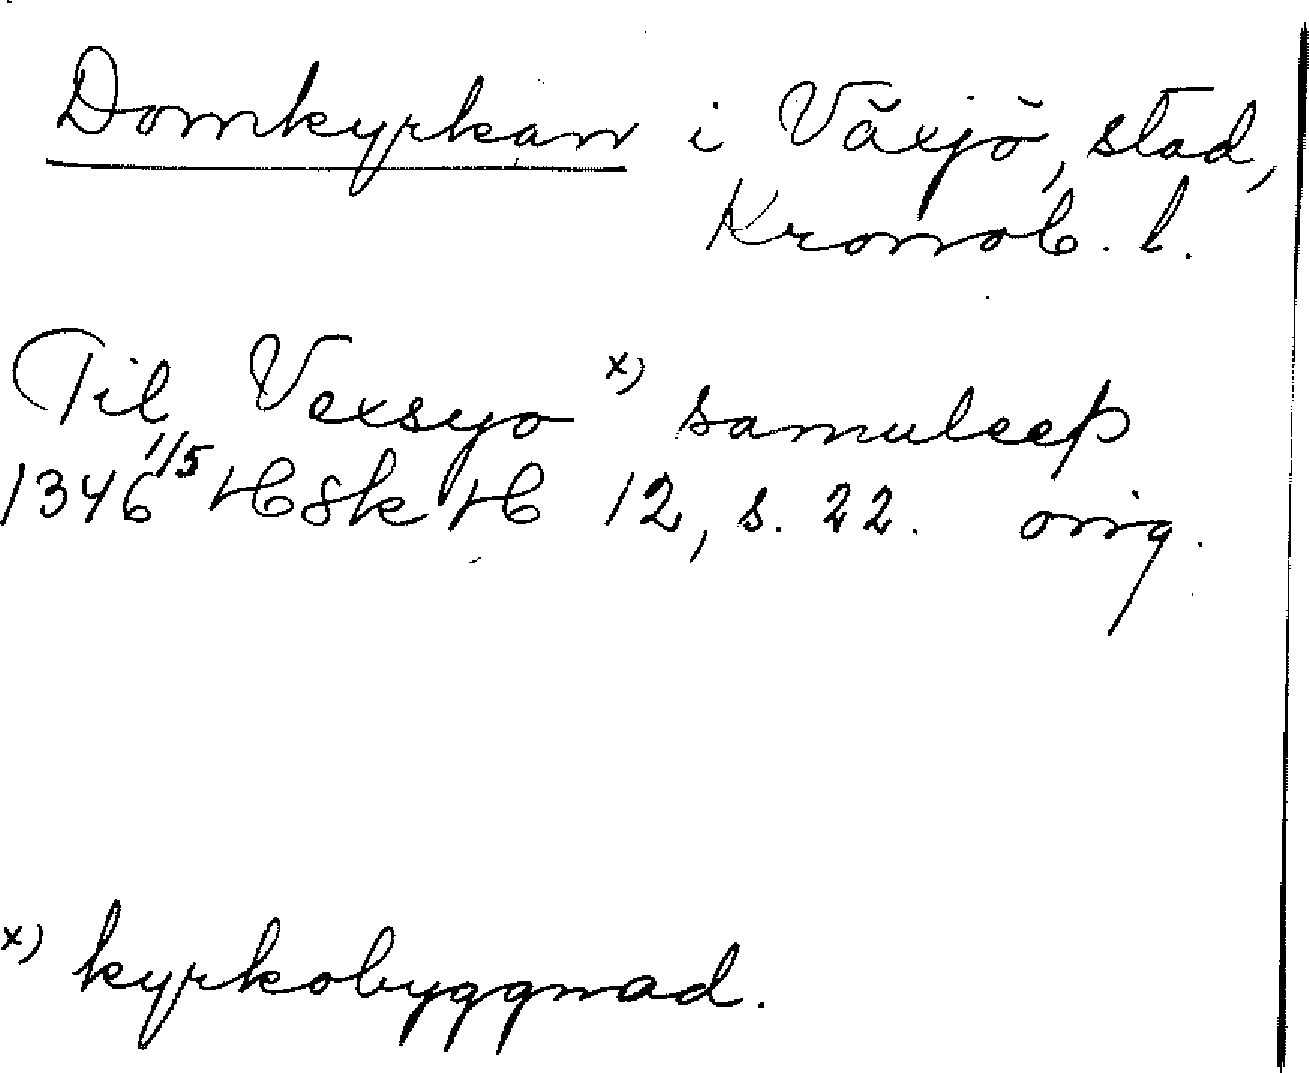 Domkyrkan i Växjö, stad,
Kronob. l.
Til Vexsyo x) samuleeþ
1346 1/5 HSkH 12, s. 22. orig.
x) kyrkobyggnad.